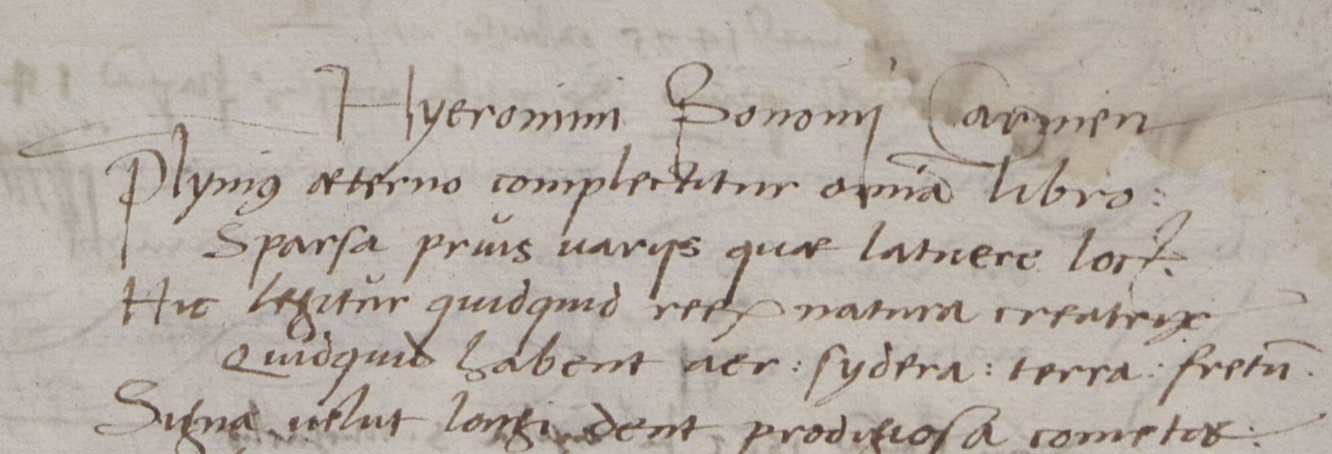 Hyeronimi Bononij Carmen
Plyniꝯ æterno complectitur omīa libro:
Sparsa prius uarijs quæ latuere locꝭ.
Hic legitur quidquid reꝝ natura creatrix
Quidquid habent aer: sydera: terra: fretū.
Signa uelut longi dent prodigiosa cometæ: